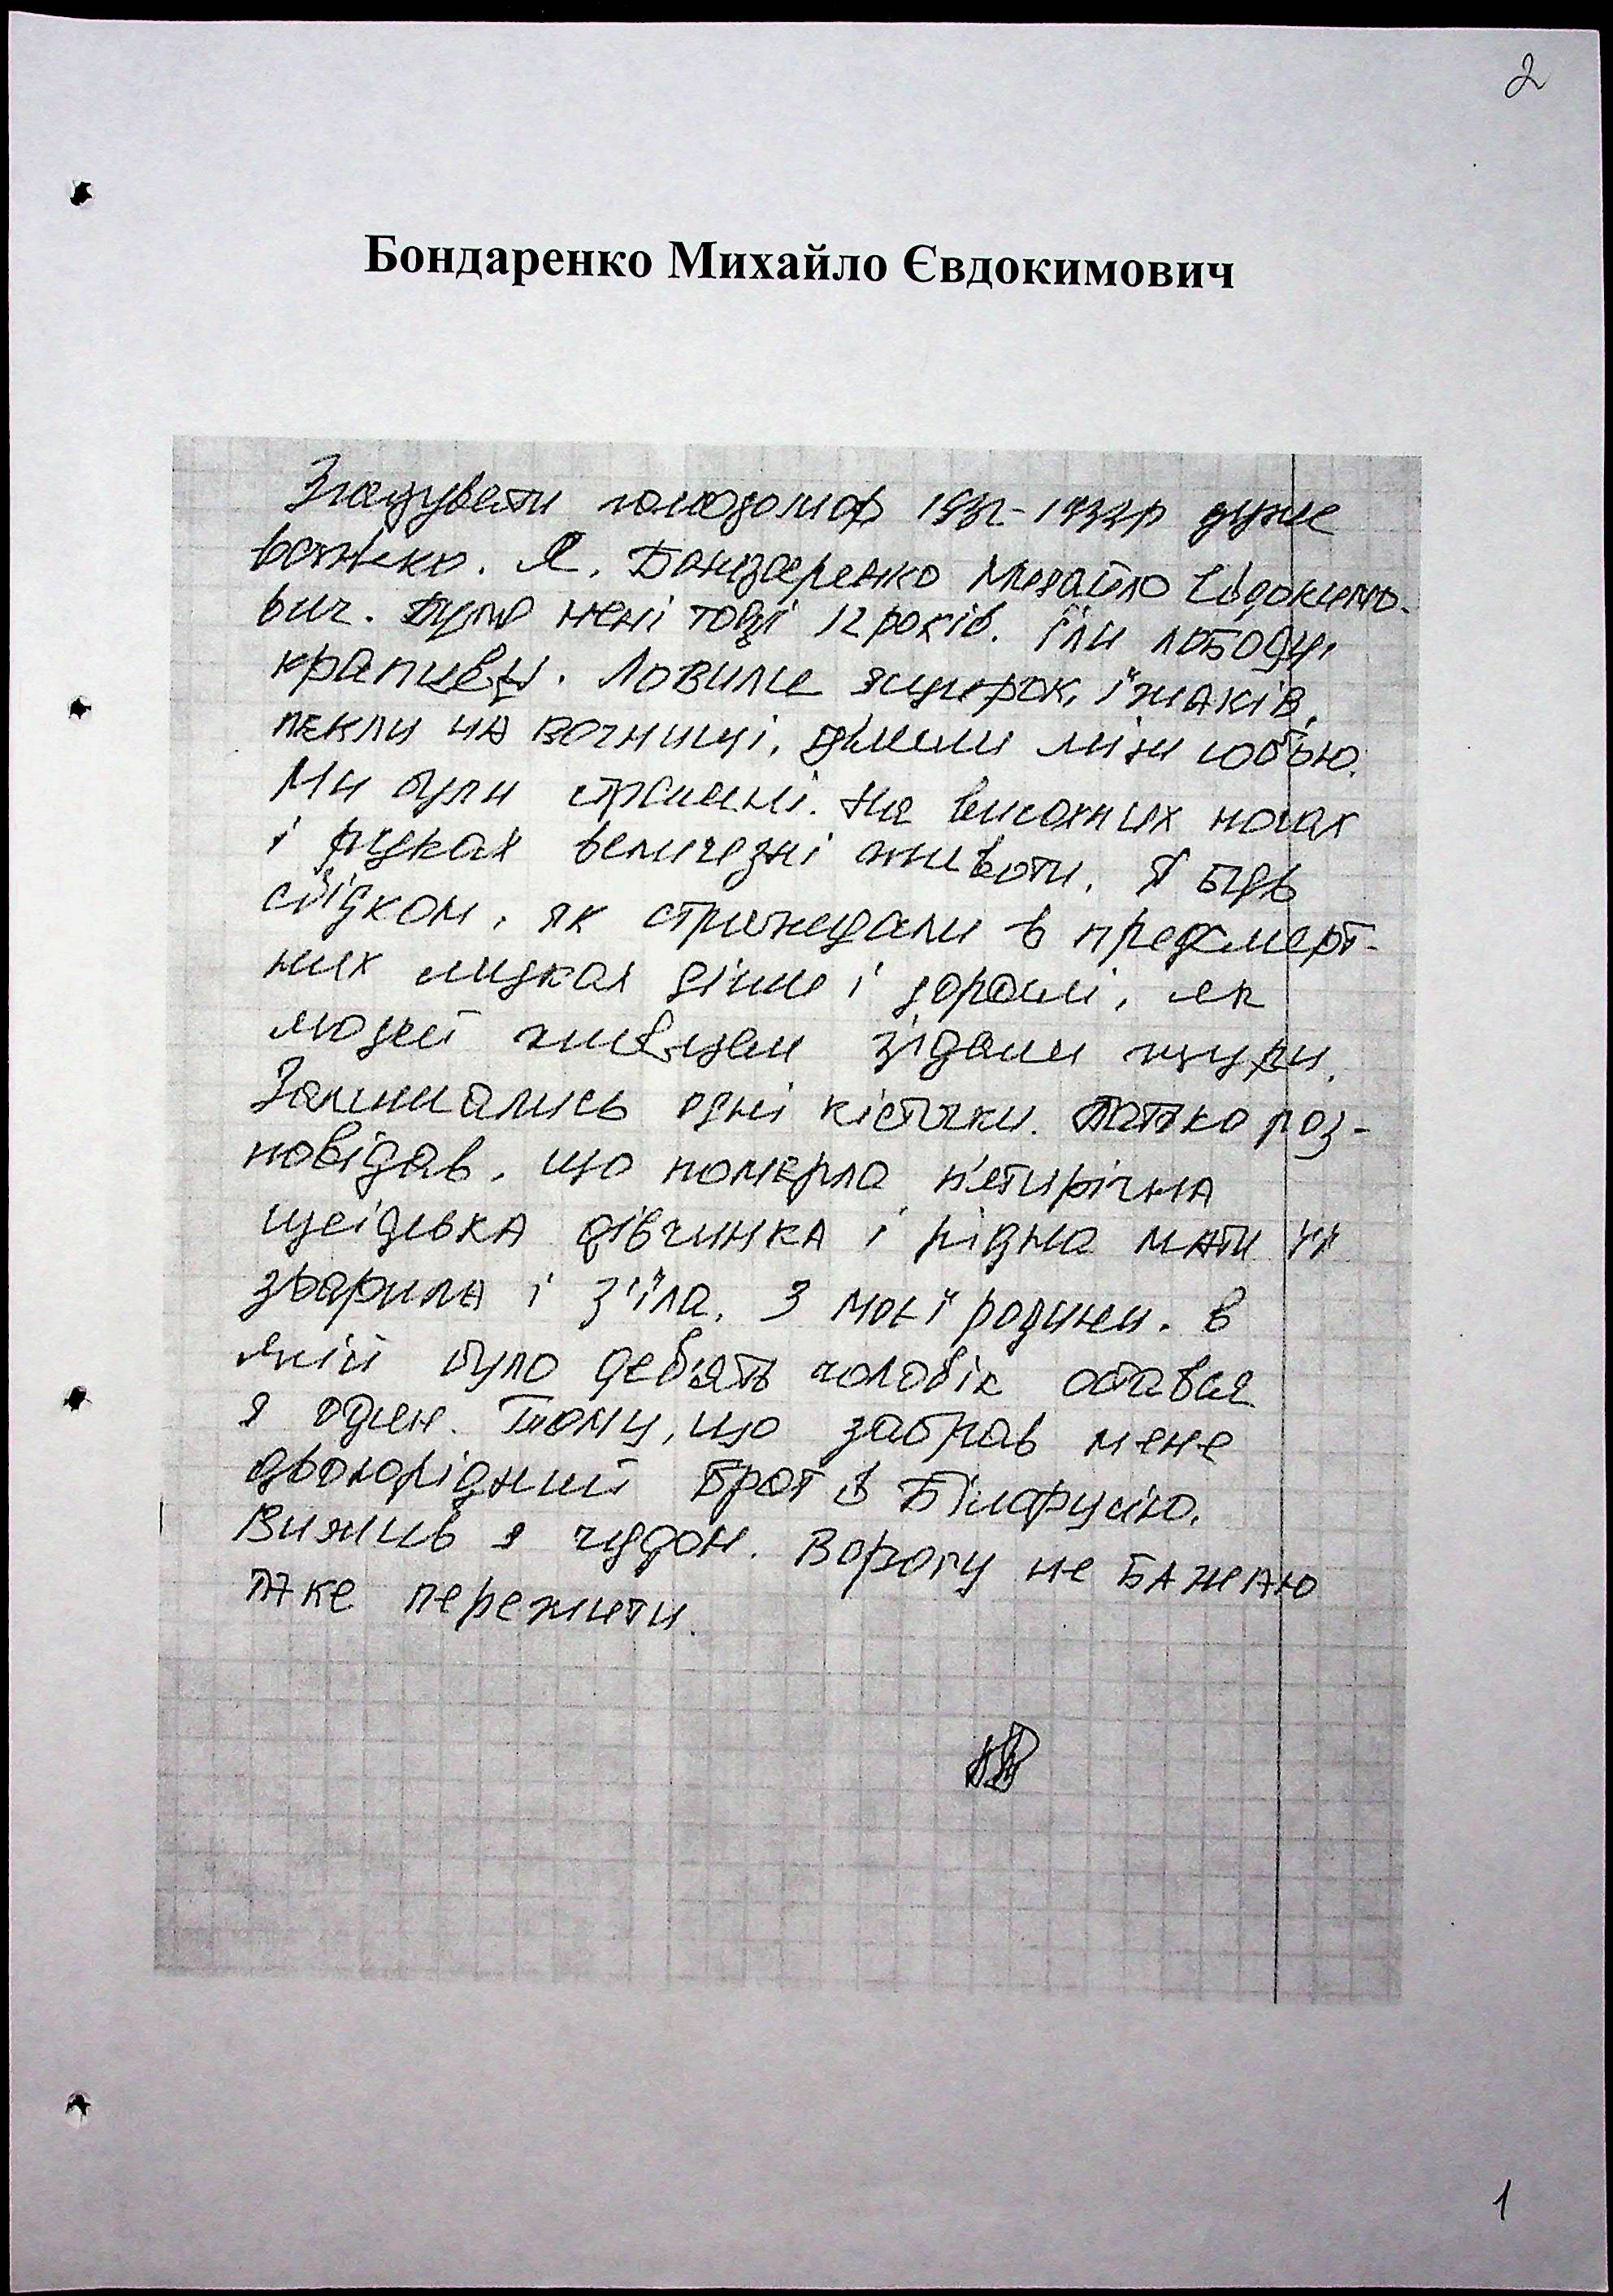 2
Бондаренко Михайло Євдокимович
Згадувати голодомор 1932-1933р дуже
важко. Я, Бондаренко Михайло Євдокимо-
вич. Було мені тоді 12 років. Їли лободу,
крапиву. Ловили ящірок, їжаків,
пекли на вогнищі, ділили між собою.
Ми були страшні. На висохших ногах
і руках величезні животи. Я був
свідком, як страждали в предсмерт-
них муках діти і дорослі, як
людей живцем з'їдали щури.
Залишались одні кістяки. Батько роз-
повідав, що померла п'ятирічна
сусідська дівчинка і рідна мати її
зварила і з'їла. З моєї родини, в
якій було дев'ять чоловік остався
я один. Тому, що забрав мене
двоюрідний брат в Білорусію.
Вижив я чудом. Ворогу не бажаю
таке пережити.
1